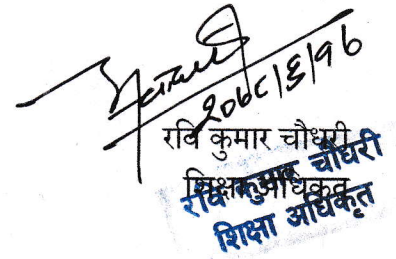 २०७८|६|१७
रवि कुमार चौधरी
शिक्षा अधिकृत
रवि कुमार चौधरी
शिक्षा अधिकृत